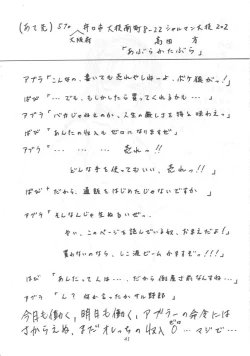 (あて先) 570 守口市大枝南町8-22シャルマン大枝202
大阪府 高田 方
「あぶらかたぶら」
アブラ「こんなの、書いても売れやしねーよ、ボケ猿がっ!」
ばぴ「…でも、もしかしたら買ってくれるかも…」
アブラ「バカじゃねえのか、人生の厳しさを特と味わえっ」
ばぴ「あしたの収入もゼロになりますぜ」
アブラ「… … … 売れっ!!
どんな手を使ってもいい、売れっ!!」
ばぴ「だから、直販をはじめたじゃないですか」
アブラ「そしなんじゃ生ぬるいぜっ。
おい、このページを読んでいるお、おまえだよ!
買わねのなら、しこ流ビームかますぞっ!!!」
ばぴ「あしたって人は…、だから倒産寸前なんすね…」
アブラ「ん?何か言ったかサル野郎」
今日も働く、明日も働く、アブラーの命令には
さからえね、まだオレっちの収入0… マジで…
41